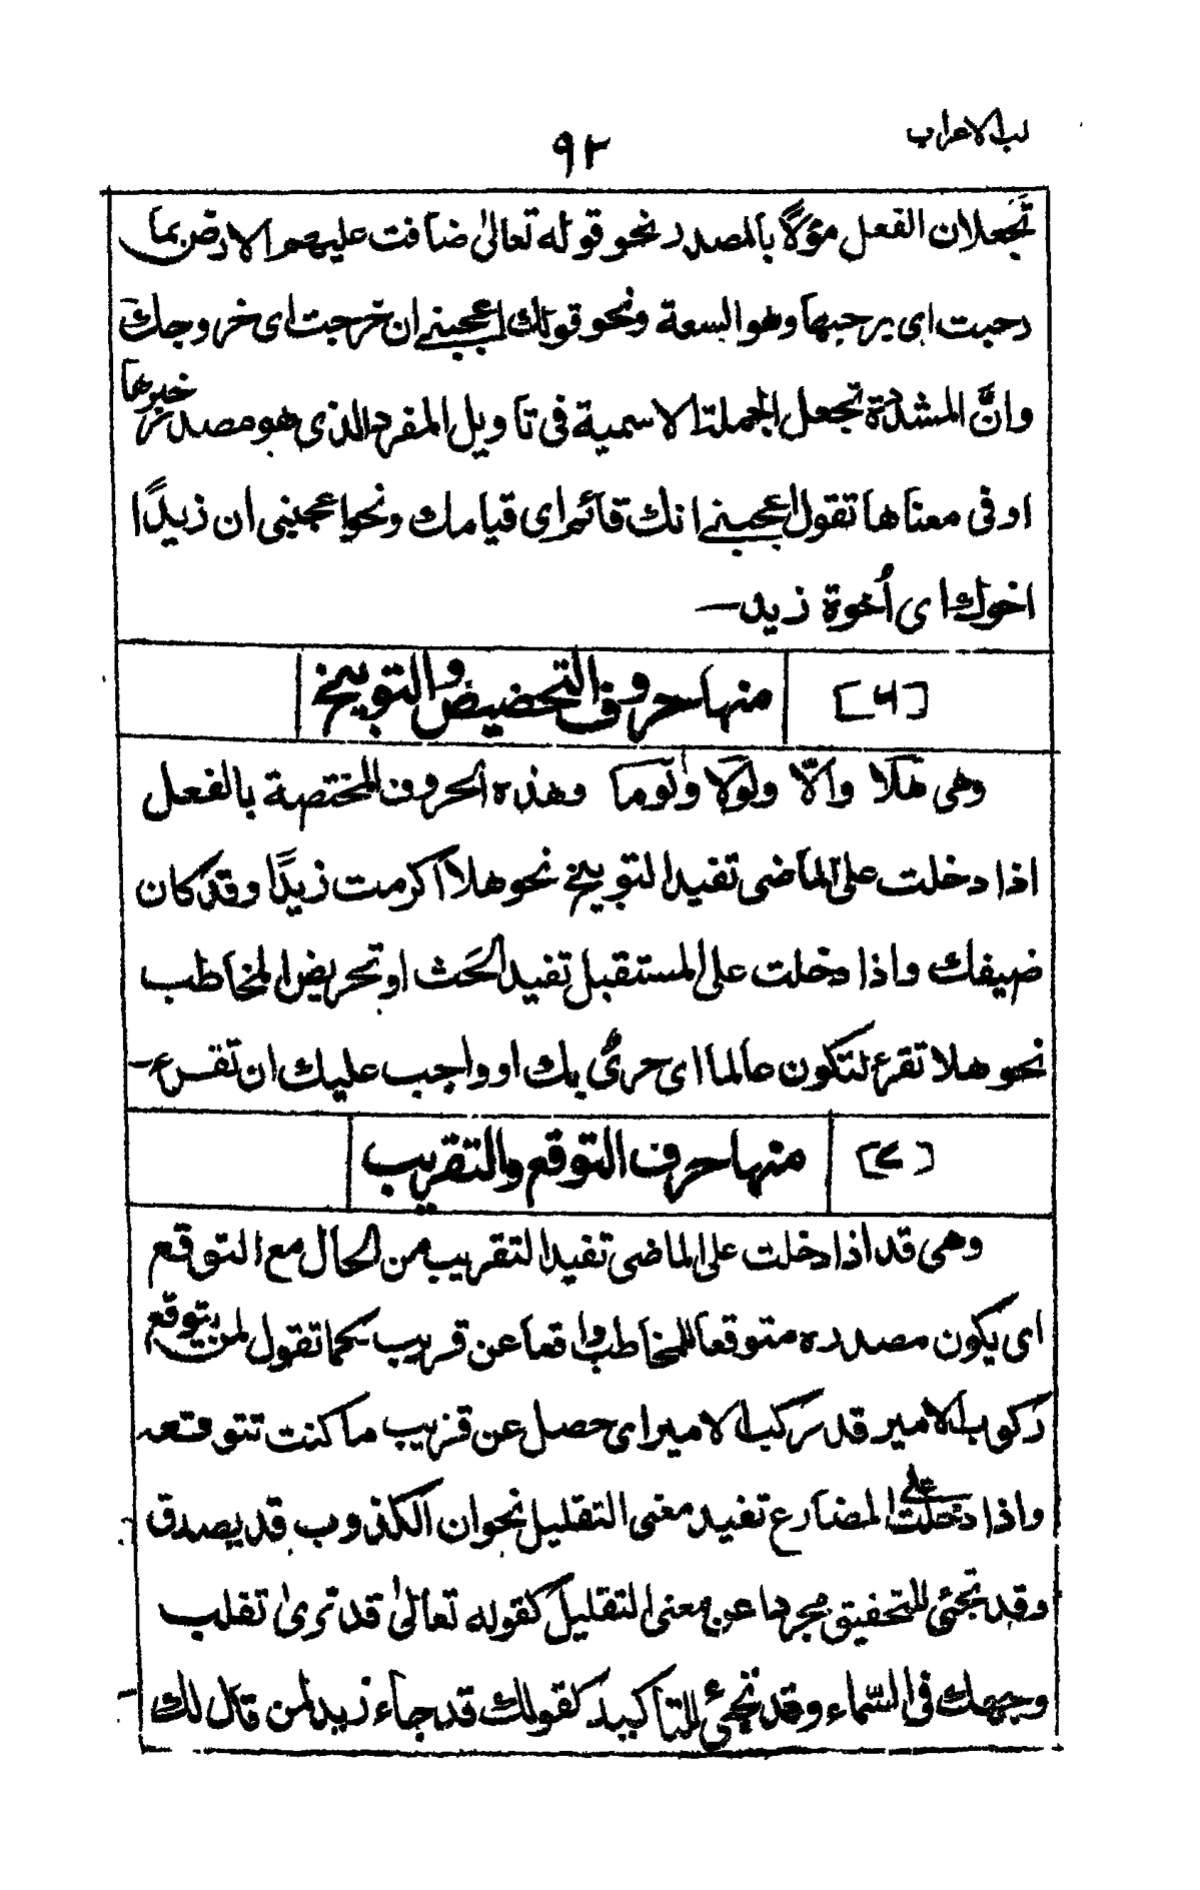 لب الاعراب
٩٢
تَجَعلان الفعل مؤلاً بالمصدر نحو قوله تعالىٰ ضاقت عليهم الارض بما
رحبت اى برحبها وهو السعة ونحو قولك اعجبنى ان خرجت اى خروجك
وانَّ المشدّدة تجعل الجملة الاسمية فى تاويل المفرد الذى هو مصدر خبرها
او فى معناها تقول اعجبنى انك قائم اى قيامك ونحو اعجبنى ان زيدًا
اخوك اى اُخوة زيد—
[٦] منها حروف التحضيض والتوبيخ
وهى هَلَّا واَلّا ولَوَلَا ولَوما وهذه الحروف المختصة بالفعل
اذا دخلت على الماضى تفيد التوبيخ نحو هلا اكرمت زيدًا وقد كان
ضيفك واذا دخلت على المستقبل تفيد الحَث او تحريض المخاطب
نحو هلا تقرع لتكون عالما اى حرىٌّ بك او واجب عليك ان تقرع—
[٧] منها حرف التوقع والتقريب
وهى قد اذا دخلت على الماضى تفيد التقريب من الحال مع التوقع
اى يكون مصدره متوقعا للمخاطب واقعا عن قريب كما تقول لمن يتوقع
ركوب الامير قد ركب الامير اى حصل عن قريب ما كنت تتوقعه
واذا دخلت على المضارع تفيد معنى التقليل نحو ان الكذوب قد يصدق
وقد تجئ للتحقيق مجردا عن معنى التقليل كقوله تعالىٰ قد نرىٰ تقلب
وجهك فى السّماء وقد تجئ للتاكيد كقولك قد جاء زيد لمن قال لك